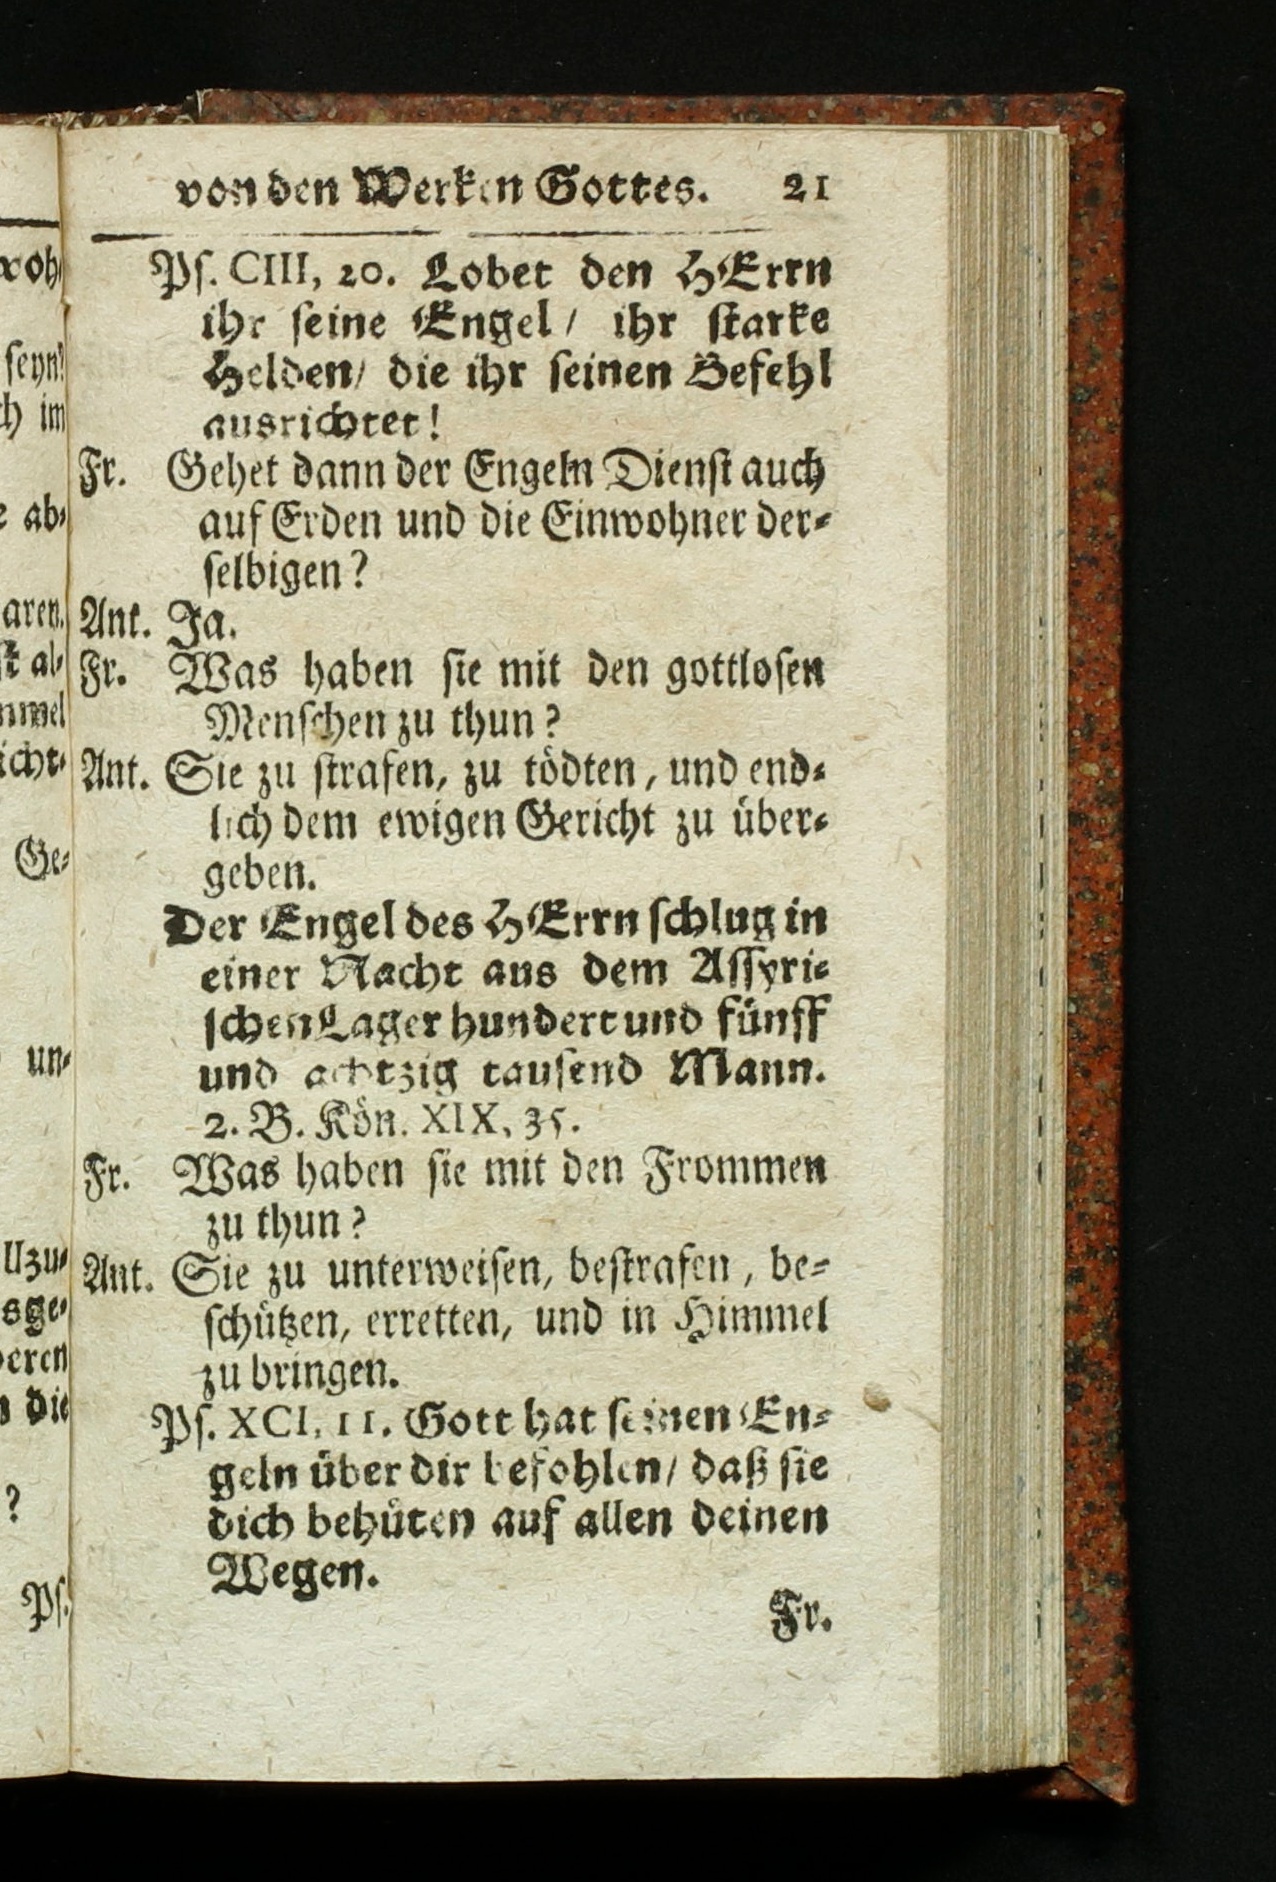 von den Werken Gottes. 21
Pſ. CIII, 20. Lobet den HErrn
ihr ſeine Engel/ ihr ſtarke
Helden/ die ihr ſeinen Befehl
ausrichtet!
Fr. Gehet dann der Engeln Dienſt auch
auf Erden und die Einwohner der-
ſelbigen?
Ant. Ja.
Fr. Was haben ſie mit den gottloſen
Menſchen zu thun?
Ant. Sie zu ſtrafen, zu tödten, und end-
lich dem ewigen Gericht zu über-
geben.
Der Engel des HErrn ſchlug in
einer Nacht aus dem Aſſyri-
ſchen Lager hundert und fünff
und achtzig tauſend Mann.
2. B. Kön. XIX, 35.
Fr. Was haben ſie mit den Frommen
zu thun?
Ant. Sie zu unterweiſen, beſtrafen, be-
ſchützen, erretten, und in Himmel
zu bringen.
Pſ. XCI, 11. Gott hat ſeinen En-
geln über dir befohlen/ daß ſie
dich behüten auf allen deinen
Wegen.
Fr.